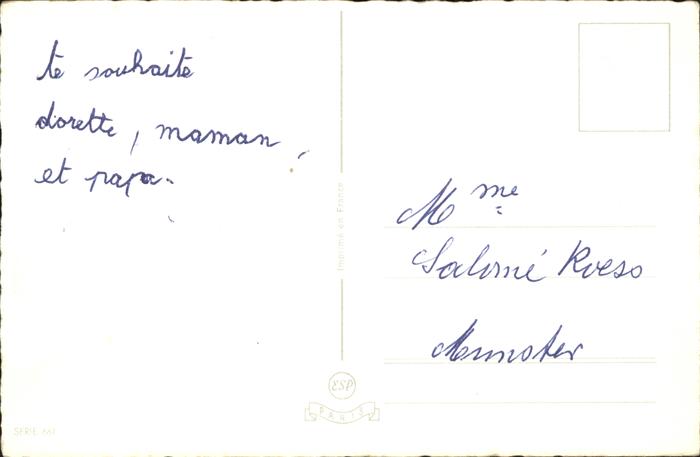 te souhaite
dorette, maman,
et papa.
Mme
Salomé Roess
Munster
Imprimé en France
ESP
PARIS
SERIE 661